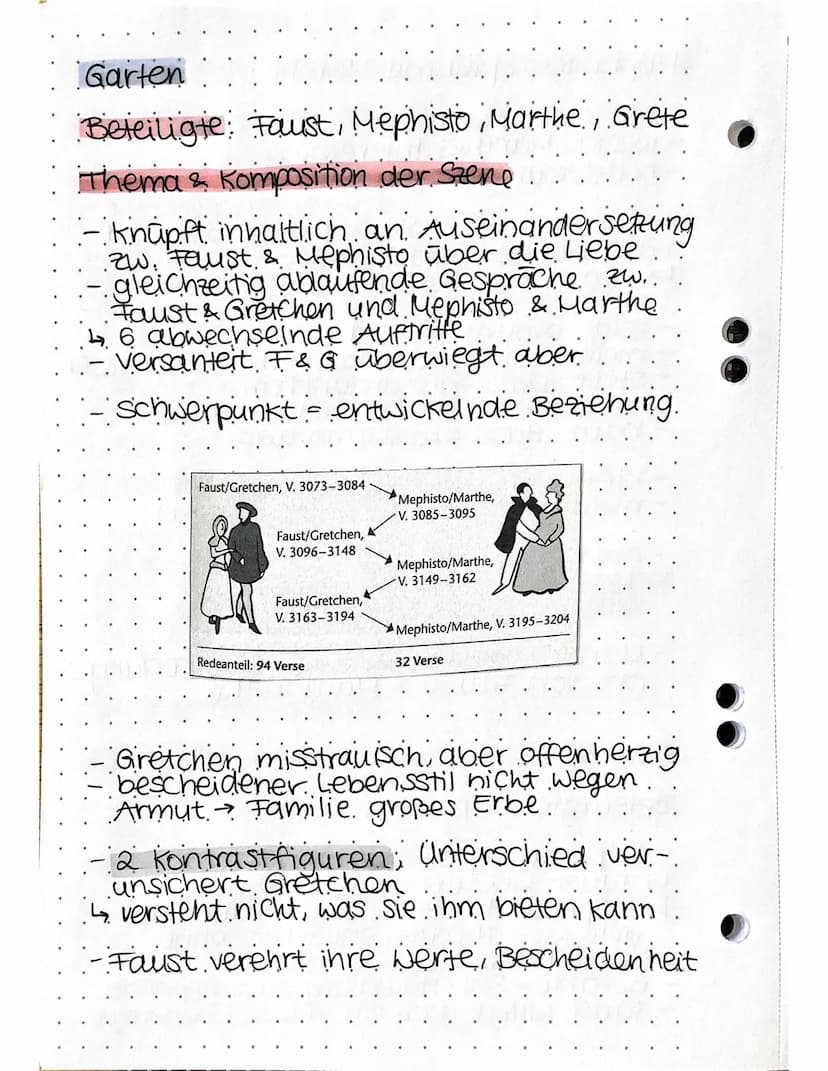 Garten
Beteiligte: Faust, Mephisto, Marthe, Grete
Thema & Komposition der Szene
- Knüpft inhaltlich an Auseinandersetzung
zw. Faust & Mephisto über die Liebe
- gleichzeitig ablaufende Gespräche zw.
Faust & Gretchen und Mephisto & Marthe
↳ 6 abwechselnde Auftritte
- Versanteil F & G überwiegt aber
- Schwerpunkt = entwickelnde Beziehung
Faust/Gretchen, V. 3073–3084
Mephisto/Marthe,
V. 3085–3095
Faust/Gretchen,
V. 3096–3148
Mephisto/Marthe,
V. 3149–3162
Faust/Gretchen,
V. 3163–3194
Mephisto/Marthe, V. 3195–3204
Redeanteil: 94 Verse 32 Verse
- Gretchen misstrauisch, aber offenherzig
- bescheidener Lebensstil nicht wegen
Armut → Familie großes Erbe
- 2 Kontrastfiguren; Unterschied ver-
unsichert Gretchen
↳ versteht nicht, was sie ihm bieten kann
- Faust verehrt ihre Werte, Bescheidenheit